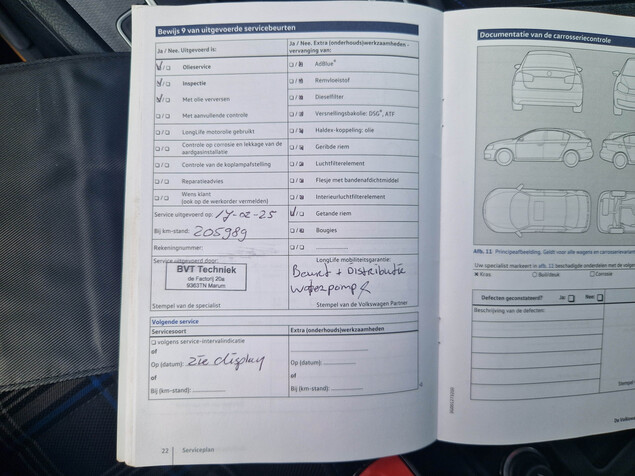 Bewijs 9 van uitgevoerde servicebeurten
Ja / Nee. Uitgevoerd is:
Olieservice
Inspectie
Met olie verversen
Met aanvullende controle
LongLife motorolie gebruikt
Controle op corrosie en lekkage van de aardgasinstallatie
Controle van de koplampafstelling
Reparatieadvies
Wens klant
(ook op de werkorder vermelden)
Service uitgevoerd op: 17-02-25
Bij km-stand: 205989
Rekeningnummer:
Service uitgevoerd door:
BVT Techniek
de Factorij 20a
9363TN Marum
Stempel van de specialist
Ja / Nee. Extra (onderhouds)werkzaamheden - vervanging van:
AdBlue®
Remvloeistof
Dieselfilter
Versnellingsbakolie: DSG®, ATF
Haldex-koppeling: olie
Geribde riem
Luchtfilterelement
Flesje met bandenafdichtmiddel
Interieurluchtfilterelement
Getande riem
Bougies
LongLife mobiliteitsgarantie:
Beurt + Distributie
waterpomp
Stempel van de Volkswagen Partner
Volgende service
Servicesoort
volgens service-intervalindicatie
of
Op (datum): zie display
of
Bij (km-stand):
Extra (onderhouds)werkzaamheden
Op (datum):
of
Bij (km-stand):
22 | Serviceplan
Documentatie van de carrosseriecontrole
Afb. 11 Principeafbeelding. Geldt voor alle wagens en carrosserievarian
Uw specialist markeert in afb. 11 beschadigde onderdelen met de volgen
Kras
Buil/deuk
Corrosie
Defecten geconstateerd?
Ja
Nee
Beschrijving van de defecten:
Stempel
De Volkswa